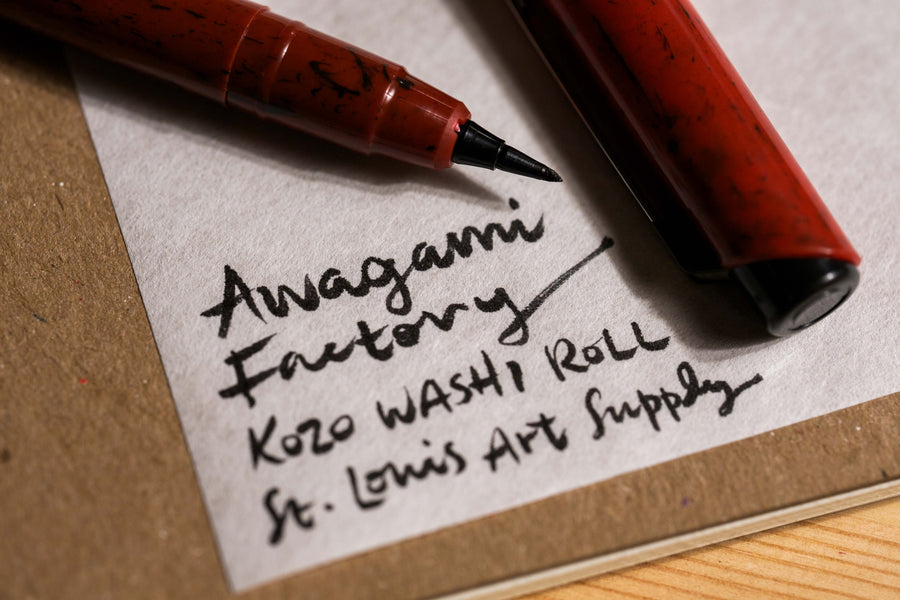 Awagami
Factory
KOZO WASHI ROLL
St. Louis Art Supply